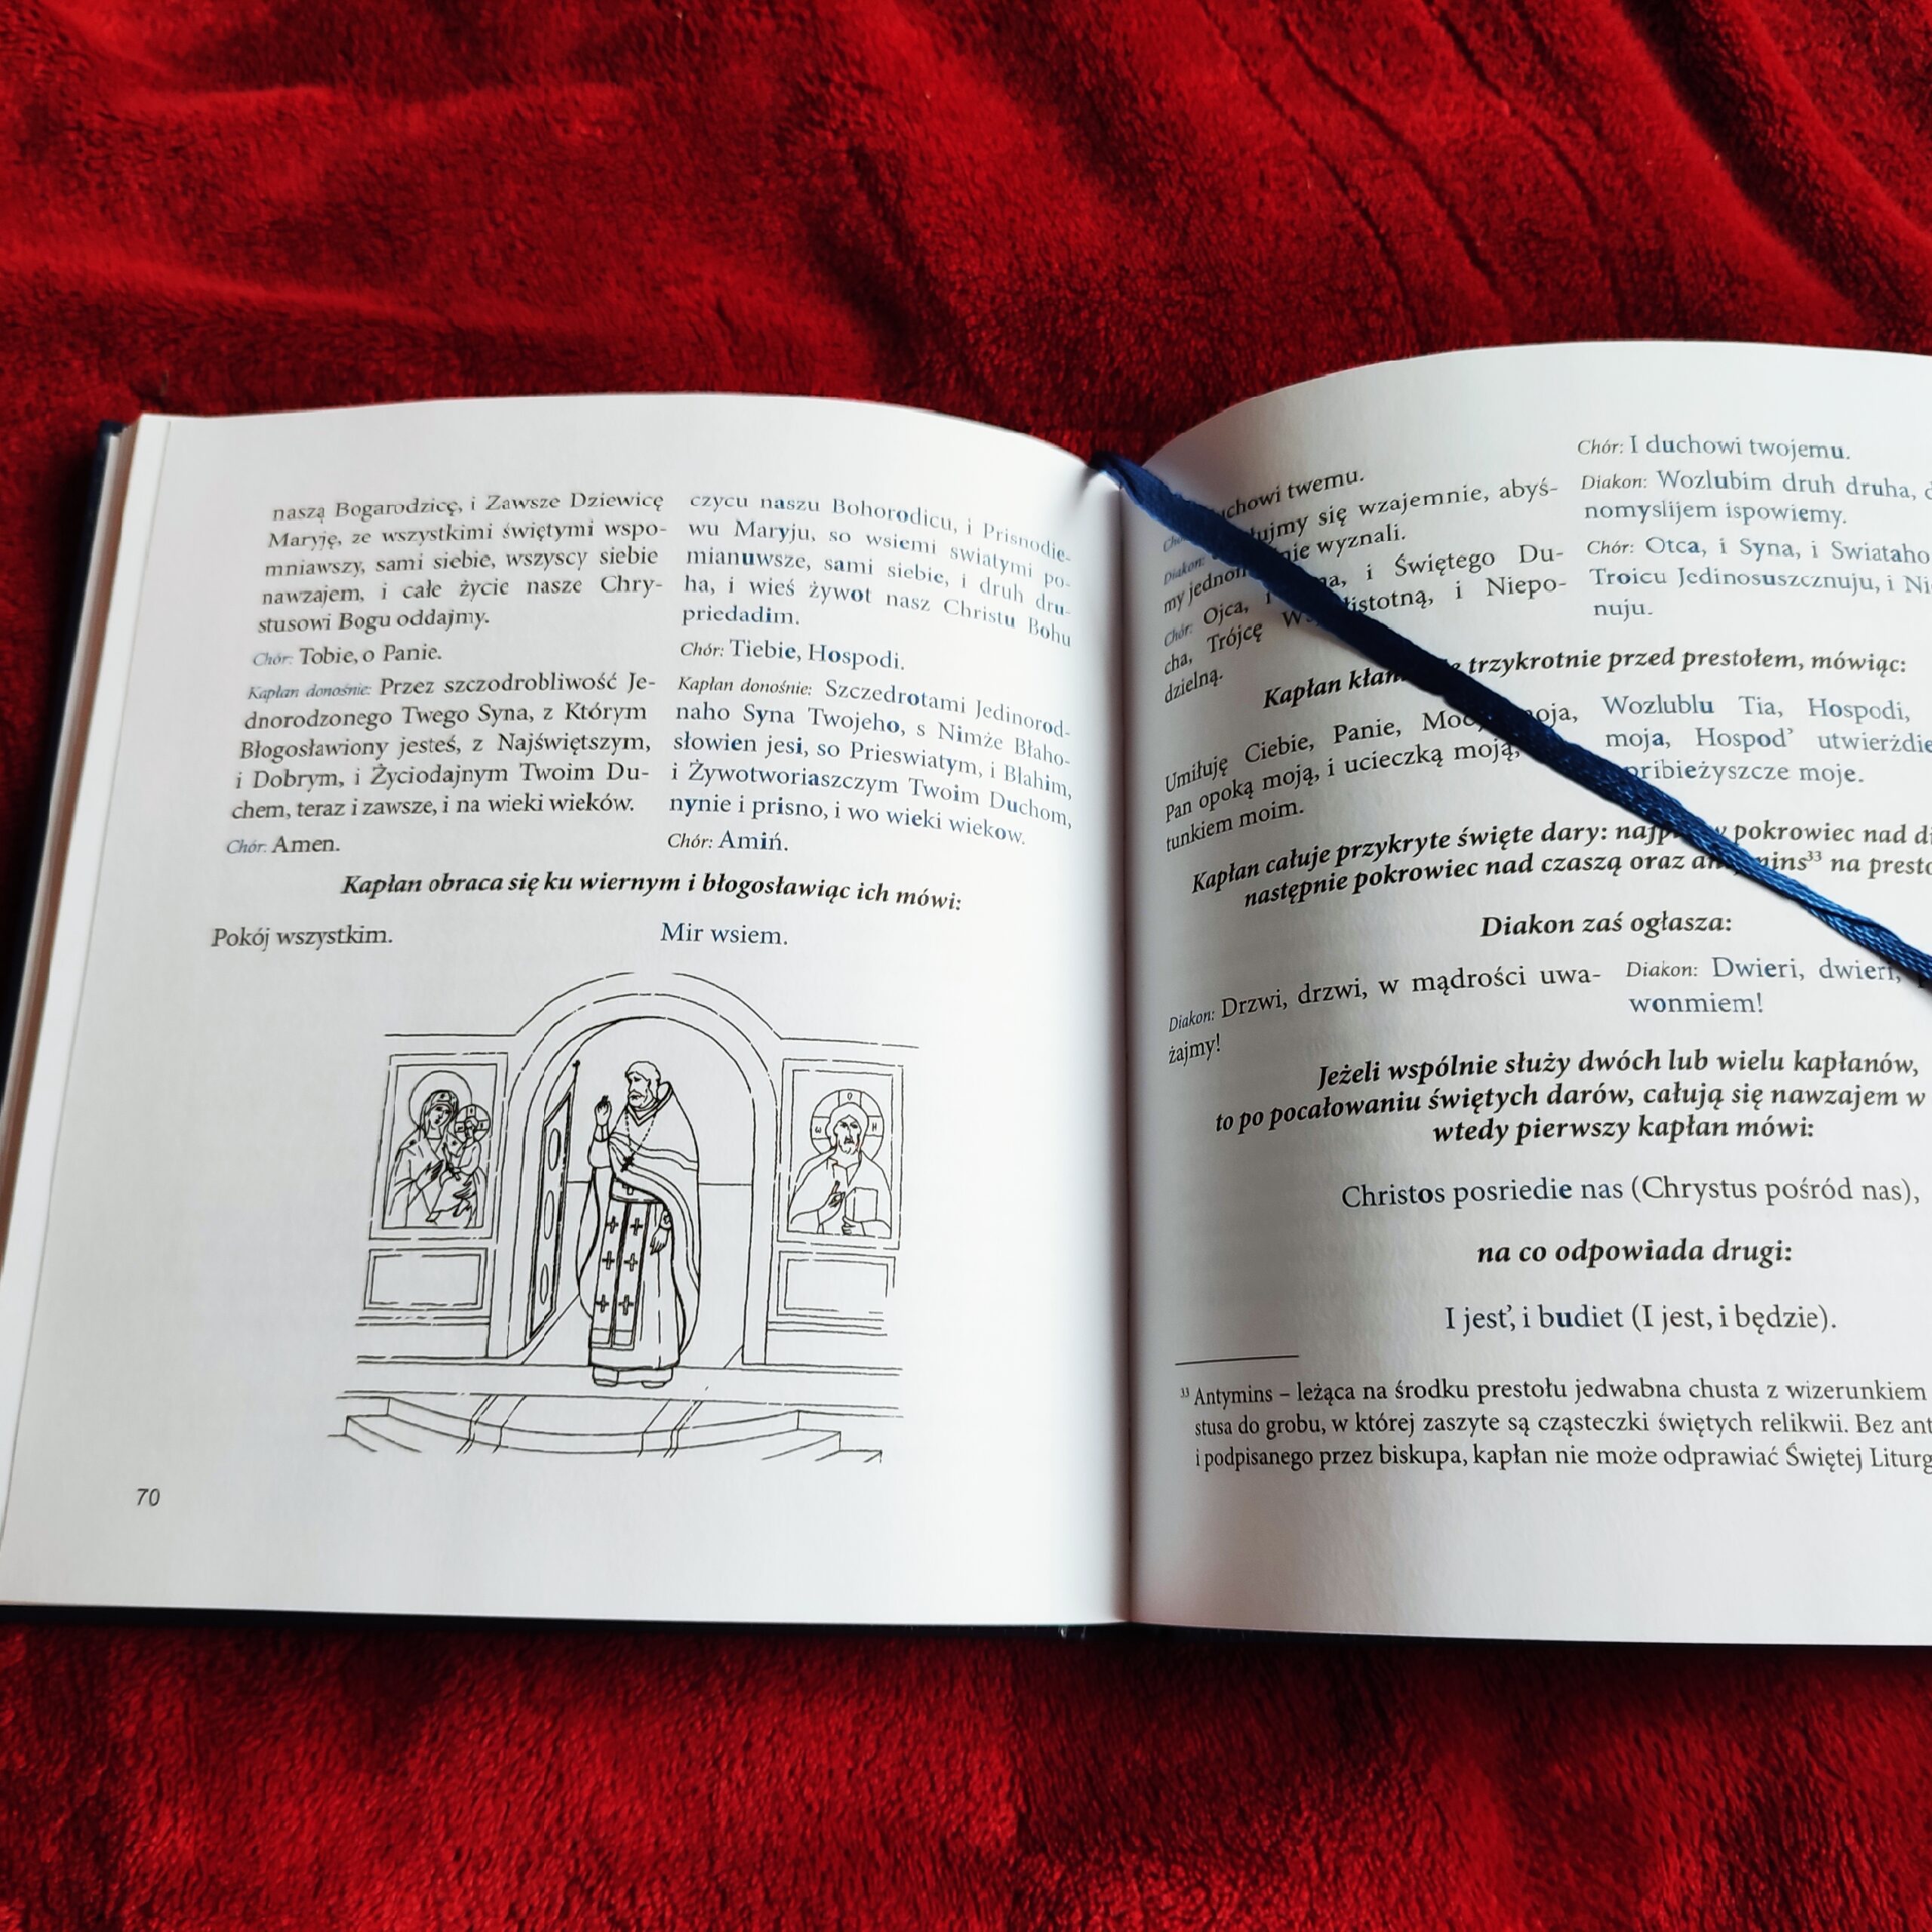 naszą Bogarodzicę, i Zawsze Dziewicę
Maryję, ze wszystkimi świętymi wspo-
mniawszy, sami siebie, wszyscy siebie
nawzajem, i całe życie nasze Chry-
stusowi Bogu oddajmy.
Chór: Tobie, o Panie.
Kapłan donośnie: Przez szczodrobliwość Je-
dnorodzonego Twego Syna, z Którym
Błogosławiony jesteś, z Najświętszym,
i Dobrym, i Życiodajnym Twoim Du-
chem, teraz i zawsze, i na wieki wieków.
Chór: Amen.
czycu naszu Bohorodicu, i Prisnodie-
wu Maryju, so wsiemi swiatymi po-
mianuwsze, sami siebie, i druh dru-
ha, i wieś żywot nasz Christu Bohu
priedadim.
Chór: Tiebie, Hospodi.
Kapłan donośnie: Szczedrotami Jedinorod-
naho Syna Twojeho, s Nimże Błaho-
słowien jesi, so Prieswiatym, i Błahim,
i Żywotworiaszczym Twoim Duchom,
nynie i prisno, i wo wieki wiekow.
Chór: Amiń.
Kapłan obraca się ku wiernym i błogosławiąc ich mówi:
Pokój wszystkim.
Mir wsiem.
70
twemu.
Diakon: się wzajemnie, abyś-
my wyznali.
Chór: Ojca, i Świętego Du-
cha, Trójcę i Niepo-
dzielną.
Chór: I duchowi twojemu.
Diakon: Wozlubim druh druha,
nomyslijem ispowiemy.
Chór: Otca, i Syna, i Swiataho
Troicu Jedinosuszcznuju, i
nuju.
Kapłan trzykrotnie przed prestołem, mówiąc:
Umiłuję Ciebie, Panie,
Pan opoką moją, i ucieczką moją,
tunkiem moim.
Wozlublu Tia, Hospodi,
moja, Hospod’
pribieżyszcze moje.
Kapłan całuje przykryte święte dary: pokrowiec nad
następnie pokrowiec nad czaszą oraz na
Diakon zaś ogłasza:
Diakon: Drzwi, drzwi, w mądrości uwa-
żajmy!
Diakon: Dwieri, dwieri,
wonmiem!
Jeżeli wspólnie służy dwóch lub wielu kapłanów,
to po pocałowaniu świętych darów, całują się nawzajem w
wtedy pierwszy kapłan mówi:
Christos posriedie nas (Chrystus pośród nas),
na co odpowiada drugi:
I jest’, i budiet (I jest, i będzie).
33 Antymins – leżąca na środku prestołu jedwabna chusta z wizerunkiem
stusa do grobu, w której zaszyte są cząsteczki świętych relikwii. Bez
i podpisanego przez biskupa, kapłan nie może odprawiać Świętej